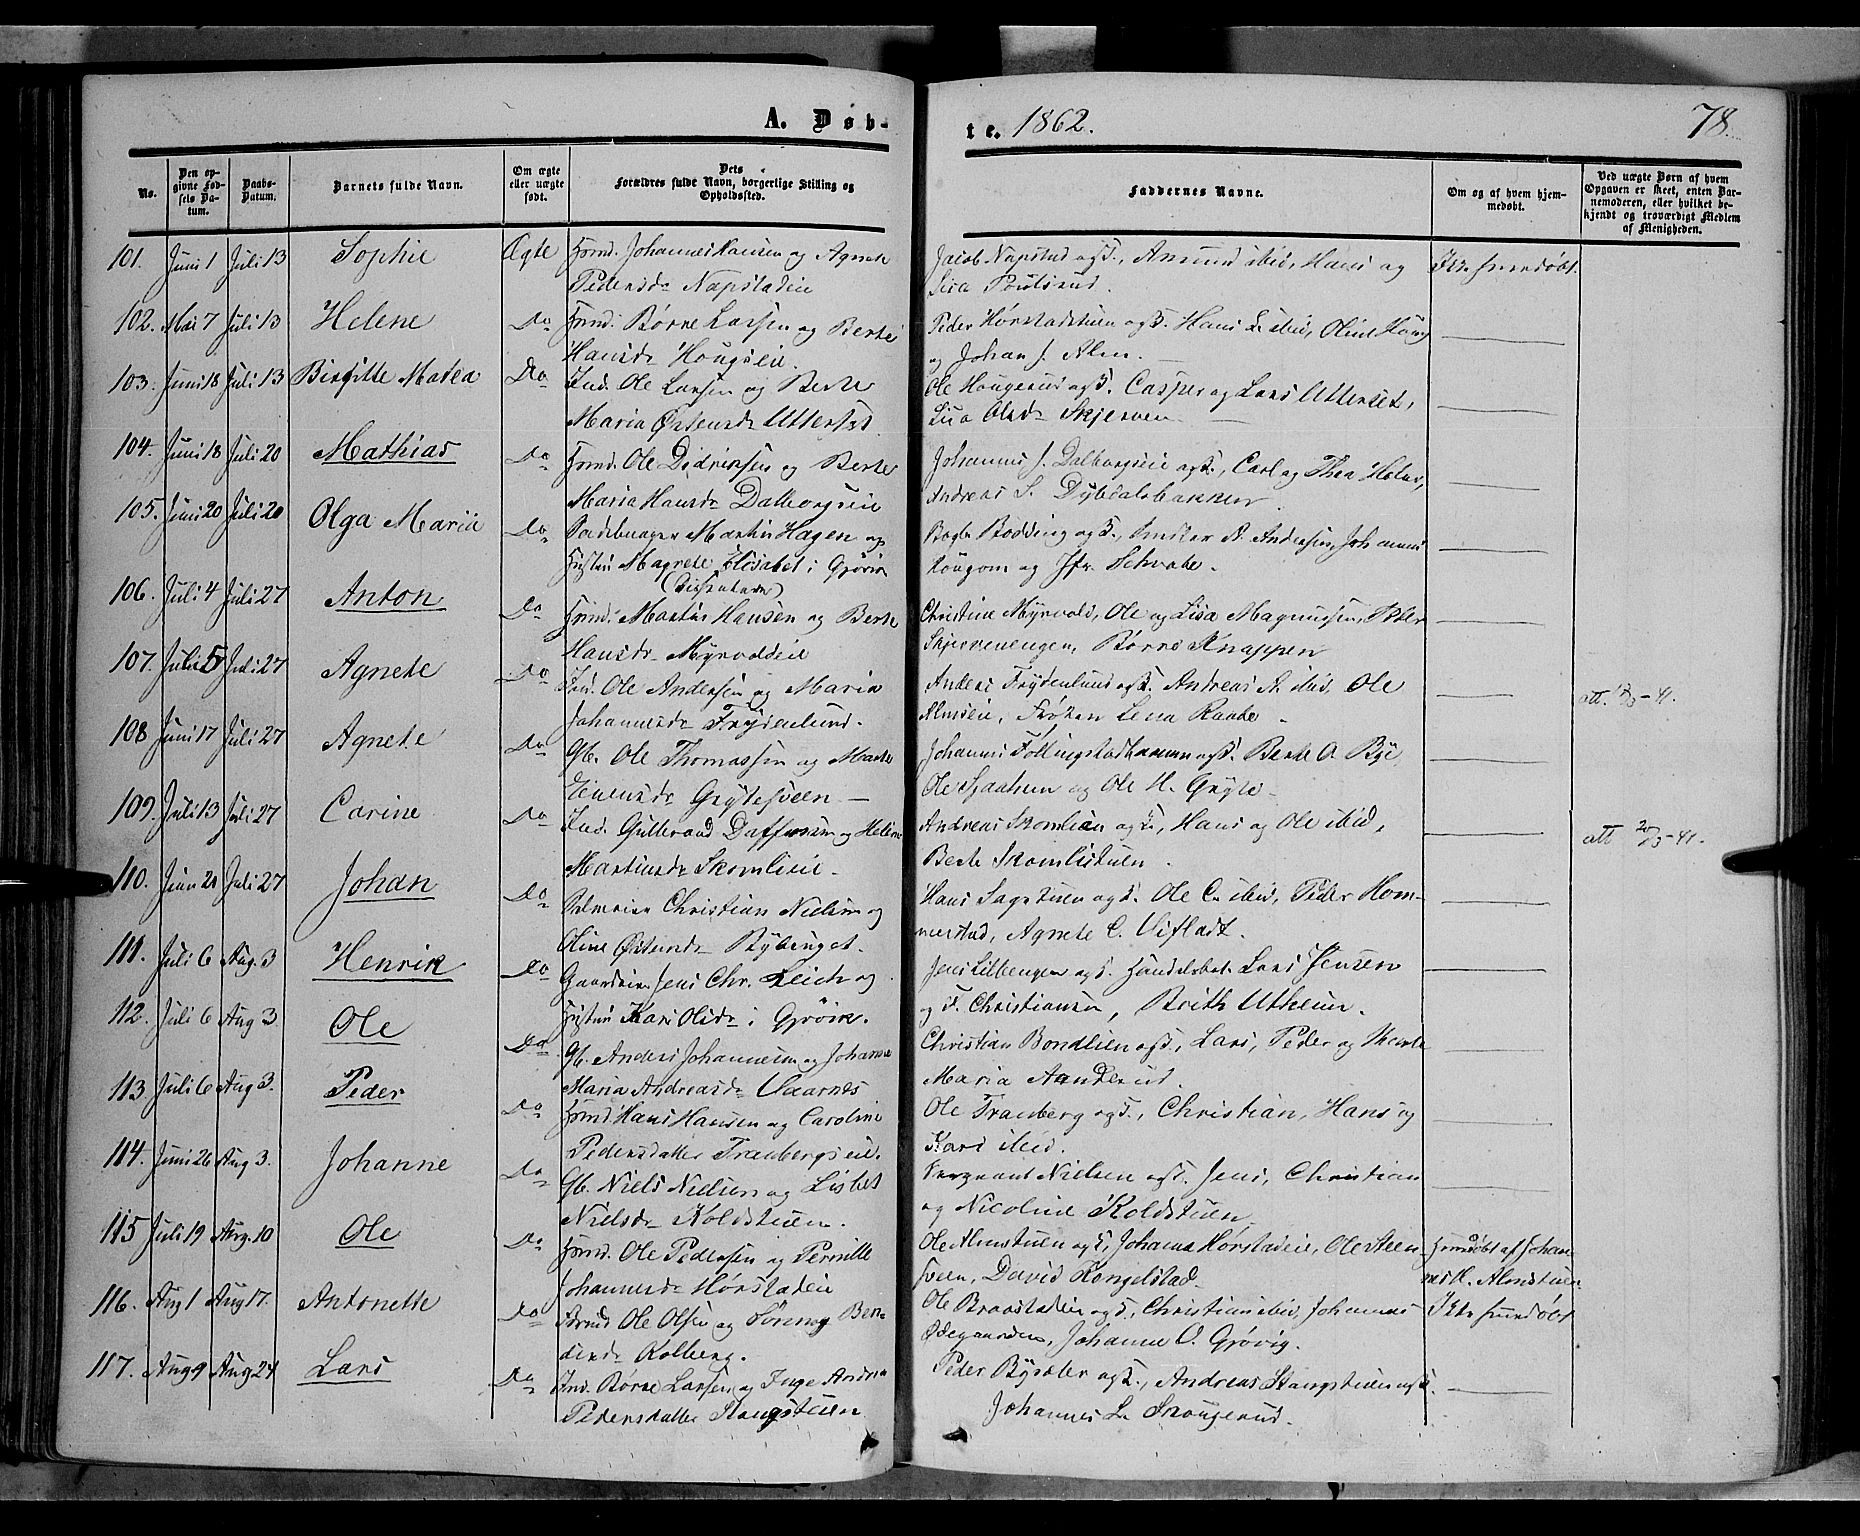 A. Døb-
te. 1862.
78.
No.
Den op-
givne Fød-
sels Da-
tum.
Daabs-
Datum.
Barnets fulde Navn.
Om ægte
eller uægte
født.
Dets
Forældres fulde Navn, borgerlige Stilling og
Opholdssted.
Faddernes Navne.
Om og af hvem hjem-
medøbt.
Ved uægte Børn af hvem
Opgaven er skeet, enten Bar-
nemoderen, eller hvilket be-
kjendt og troværdigt Medlem
af Menigheden.
101. Juni 1 Juli 13 Sophie Ægte Huusmd. Johannes Hansen og Agnete
Pedersdr Napstadeie
Jacob Napstad ogs., Amund ibid, Hans og
Lisa Poulsrud.
Ikke hjemdøbt.
102. Mai 7 Juli 13 Helene Do Huusmd. Børre Larsen og Berte
Hansdr Hougseie.
Peder Hørstadstuen ogs. Hans L. ibid, Oline Houg
og Johan J. Alm.
103. Juni 18 Juli 13 Birgitte Mathea Do Ind. Ole Larsen og Berte
Maria Østensdr Uttersed
Ole Hougerud ogs. Casper og Lars Utterset,
Lisa Olsdr Skjerven
104. Juni 18 Juli 20 Mathias Do Huusmd. Ole Didriksen og Berte
Maria Hansdr Dalborgseie
Johannes J. Dalborgseie ogs., Carl og Thea Holm,
Andreas S. Dybdalsbakken
105. Juni 20 Juli 20 Olga Marie Do Martin Hagen og
Hustru Magrete Elisabet i Gjøvik
(Dissentere)
Bødding ogs. A. Andersen, Johannes
Hougom og Jfr. Schwabe.
106. Juli 4 Juli 27 Anton Do Huusmd. Martin Hansen og Berte
Hansdr Myrvoldeie
Christine Myrvold, Ole og Lisa Magnussen, Peder
Skjervenengen, Børre Knappen
107. Juli 5 Juli 27 Agnete Do Ind. Ole Andersen og Maria
Johannesdr Frydenlund.
Anders Frydenlund ogs. Andreas A. ibid. Ole
Almseie, Frøken Lena Raabe.
att. 12/3-41.
108 Juni 17 Juli 27 Agnete Do Gb. Ole Thomassen og Marte
Einersdr Grytesveen
Johannes ogs. Berte O. Bye,
Ole Spaatum og Ole H. Gryte
109. Juli 13 Juli 27 Carine Do Ind. Gulbrand Daffinsen og Helene
Martinsdr Skomlieie.
Andreas Skomlien ogs, Hans og Ole ibid,
Berte Skomlistuen.
att 20/3-41.
110. Juni 21 Juli 27 Johan Do Christian Nielsen og
Oline Østensdr Rybruget.
Hans Sagstuen ogs. Ole C. ibid, Peder Hom-
merstad, Agnete C. Vifladt.
111. Juli 6 Aug. 3 Henrik Do Jens Chr. Reich og
Hustru Kari Olsdr i Gjøvik.
Jens Lilbengen ogs. Handelsbet. Lars Jensen
og F. Christiansen, Brith Utheim.
112. Juli 6 Aug 3. Ole Do Gb. Anders Johannesen og Johanne
Maria Andreasdr Vaarnes
Christian Bondlien ogs., Lars, Peder og Marte
Maria Aanderud.
113 Juli 6 Aug 3. Peder Do Huusmd Hans Hansen og Caroline
Pedersdatter Tranbergseie.
Ole Tranberg ogs., Christian, Hans og
Kari ibid.
114. Juni 26 Aug 3. Johanne Do Gb. Niels Nielsen og Lisbet
Nielsdr Koldstuen.
Sergeant Nielsen ogs. Jens, Christian
og Nicoline Koldstuen
115 Juli 19 Aug. 10 Ole Do Huusmd. Ole Pedersen og Pernille
Johannesdr Hørstadeie
Ole Almstuen ogs, Johanna Hørstadeie, Ole Steen-
sveen, David Kongelstad.
Hjemdøbt af Johan-
nes H. Almstuen
116. Aug 1 Aug 17. Antonette Do Ole Olsen og Ber-
dinedr Kolberg.
Ole Braastadeie ogs., Christian ibid, Johannes
Ødegaarden, Johanne O. Grøvig.
Ikke hjemdøbt
117. Aug 9 Aug 24 Lars Do Ind. Børre Larsen og Inge Andrea
Pedersdatter Stangstuen
Peder Bysæter ogs., Andreas Stangstuen ogs.
Johannes L. Skougerud.